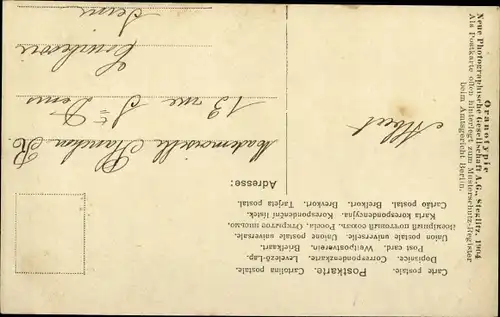 Carte postale. Postkarte. Cartolina postale.
Dopisnice. Correspondenzkarte. Levelező-Lap.
Post card. Weltpostverein. Briefkaart.
Union postale universelle. Unione postale universale.
Всемірный почтовый союзъ. Россія. Открытое письмо.
Karta korespondencyjna. Korespondenční lístek.
Cartão postal. Brefkort. Brevkort. Tarjeta postal.
Adresse:
Mademoiselle Blanche R.
13 rue St Denis
Seine
Albert
Oranotypie
Neue Photographische Gesellschaft A.G., Steglitz. 1904
Als Postkarte offen hinterlegt zum Musterschutz-Register
beim Amtsgericht Berlin.